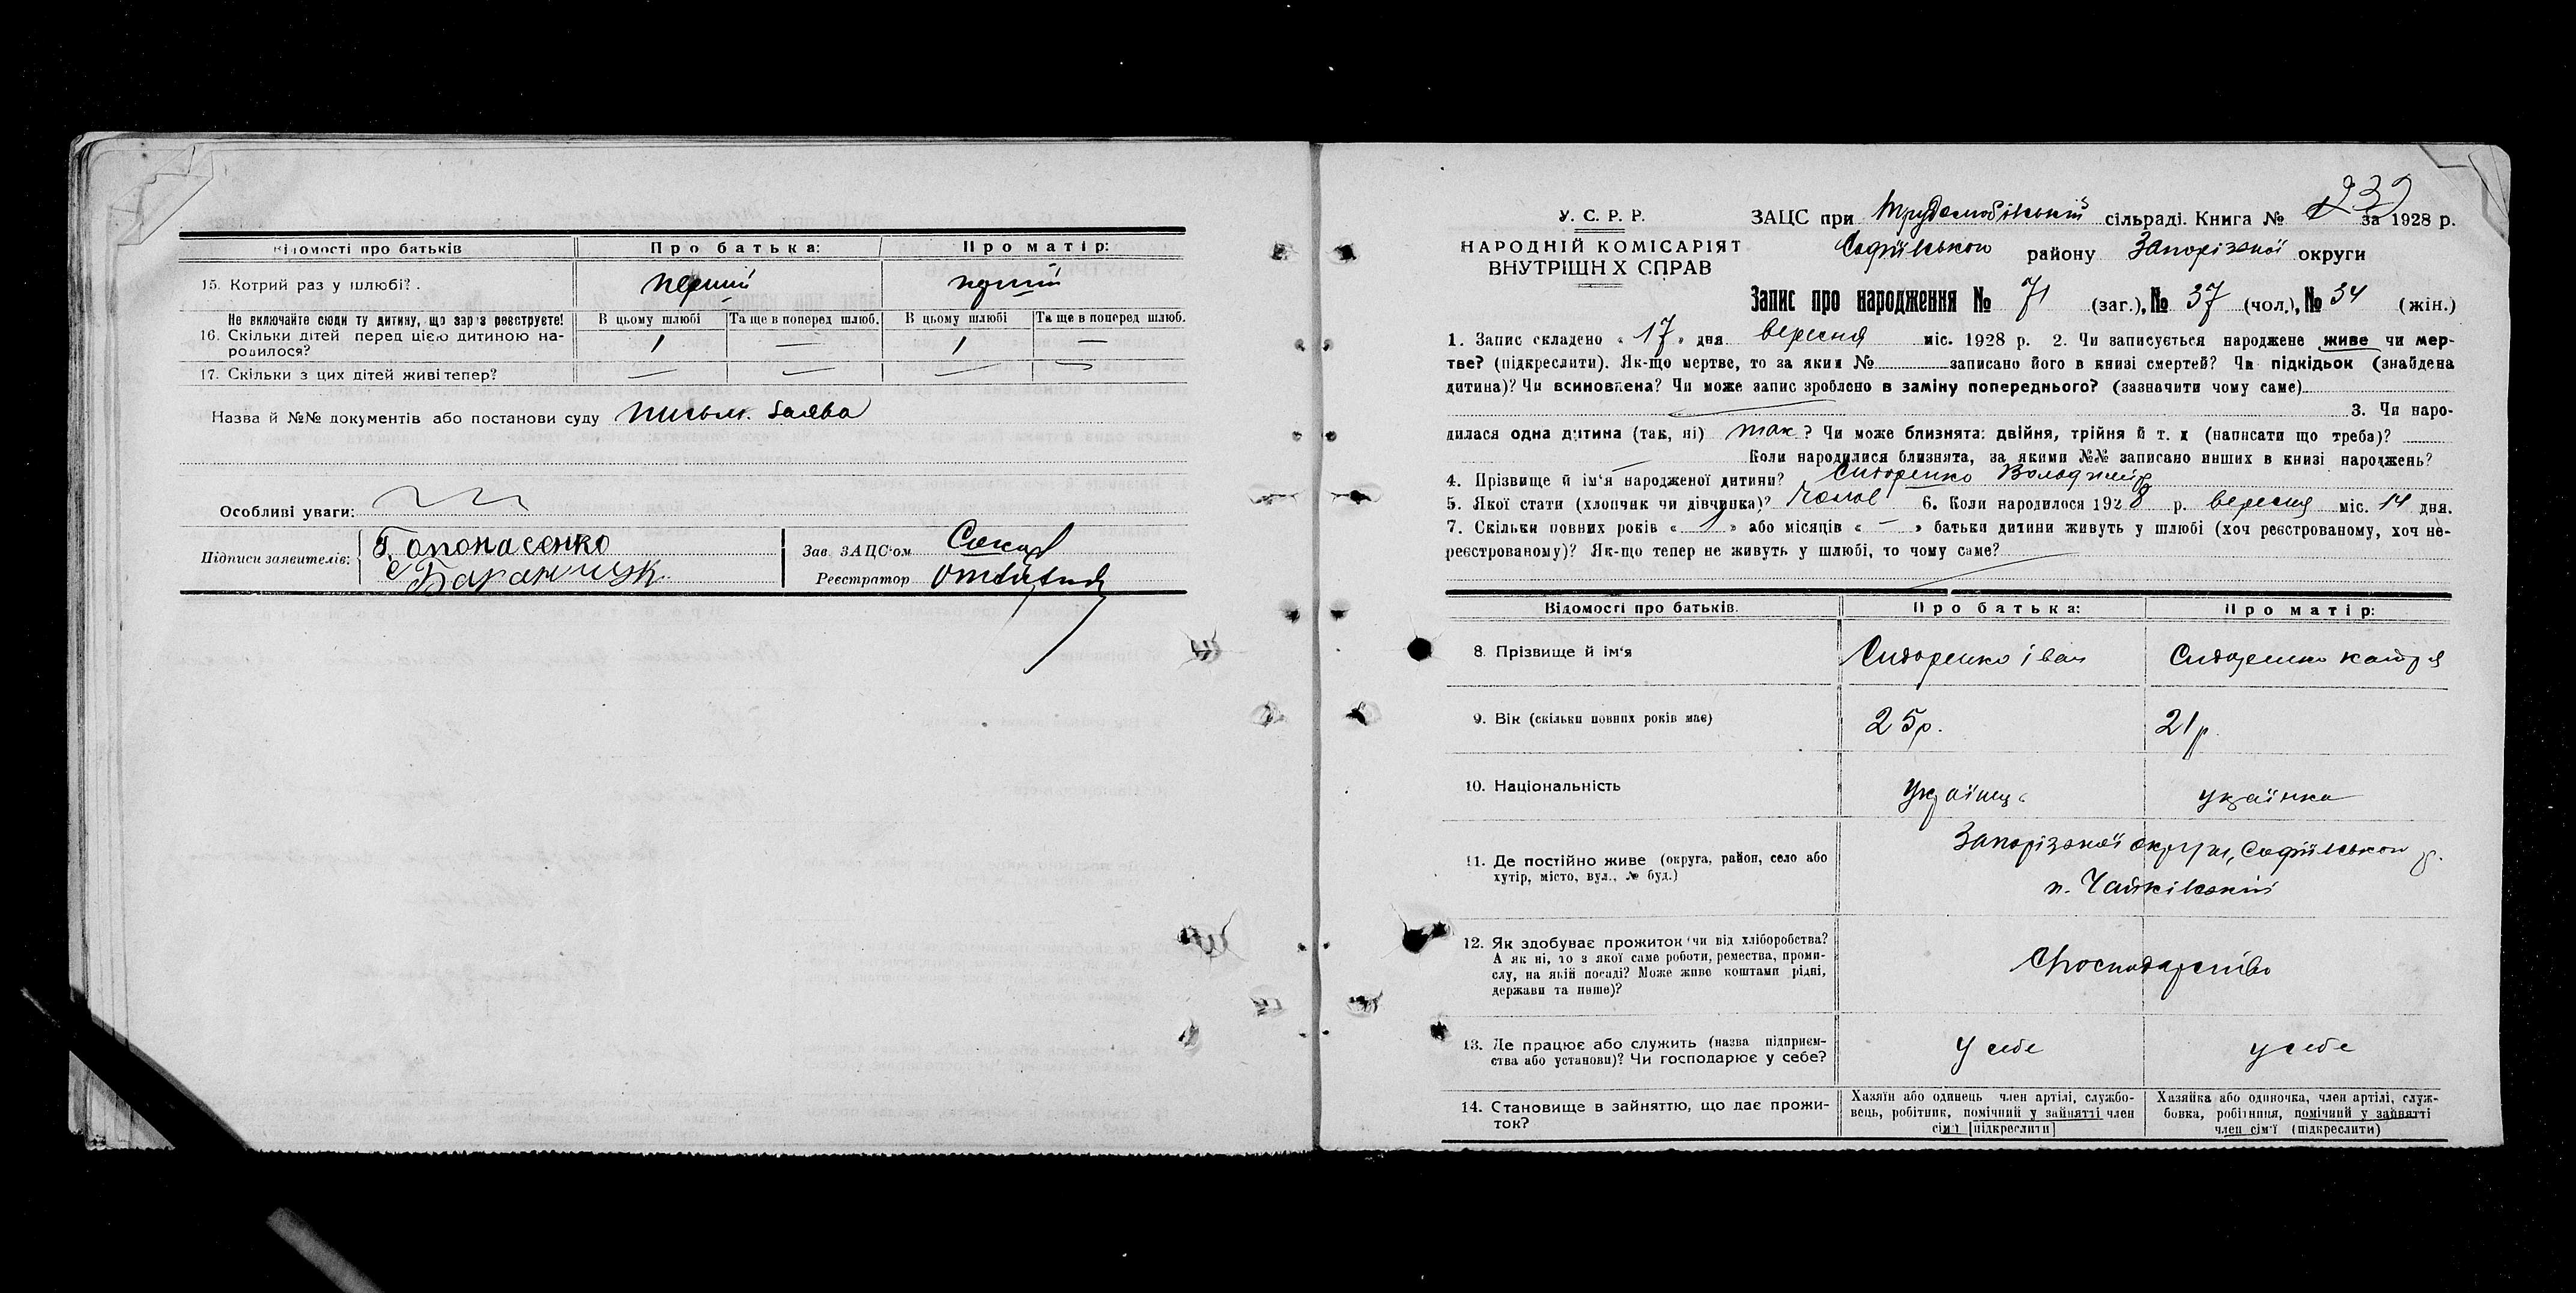 Відомості про батьків
Про батька:
Про матір:
15. Котрий раз у шлюбі?
перший
перший
Не включайте сюди ту дитину, що зараз реєструєте!
16. Скільки дітей перед цією дитиною на-
родилося?
В цьому шлюбі
Та ще в поперед шлюб.
В цьому шлюбі
Та ще в поперед шлюб.
1
—
1
—
17. Скільки з цих дітей живі тепер?
—
—
—
—
Назва й №№ документів або постанови суду письм. заява
Особливі уваги:
Підписи заявителів:
Г. опонасенко
Зав. ЗАЦС'ом
Реєстратор
У. С. Р. Р.
НАРОДНІЙ КОМІСАРІЯТ
ВНУТРІШНІХ СПРАВ
232
ЗАЦС при Трудолюбівській сільраді. Книга № за 1928 р.
Софіївського району Запорізької округи
Запис про народження № 71 (заг.), № 37 (чол.), № 34 (жін.)
1. Запис складено « 17 » дня вересня міс. 1928 р. 2. Чи записується народжене живе чи мер-
тве? (підкреслити). Як-що мертве, то за яким № записано його в книзі смертей? Чи підкідьок (знайдена
дитина)? Чи всиновлена? Чи може запис зроблено в заміну попереднього? (зазначити чому саме)
3. Чи наро-
дилася одна дитина (так, ні) так? Чи може близнята: двійня, трійня й т. д (написати що треба)?
Коли народилися близнята, за якими №№ записано инших в книзі народжень?
4. Прізвище й ім'я народженої дитини? Сидоренко Володимир
5. Якої стати (хлопчик чи дівчинка)? чолов 6. Коли народилося 1928 р. вересня міс. 14 дня.
7. Скільки повних років « 1 » або місяців « — » батьки дитини живуть у шлюбі (хоч реєстрованому, хоч не-
реєстрованому)? Як-що тепер не живуть у шлюбі, то чому саме?
Відомості про батьків.
Про батька:
Про матір:
8. Прізвище й ім'я
Сидоренко Іван
Сидоренко Катря
9. Вік (скільки повних років має)
25р.
21р
10. Національність
Українець
українка
11. Де постійно живе (округа, район, село або
хутір, місто, вул., № буд.)
Запорізької округи, Софіївського р.
п. Чайківський
12. Як здобуває прожиток чи від хліборобства?
А як ні, то з якої саме роботи, ремества, проми-
слу, на якій посаді? Може живе коштами рідні,
держави та инше)?
С/господарство
13. Де працює або служить (назва підприєм-
ства або установи)? Чи господарює у себе?
У себе
у себе
14. Становище в зайняттю, що дає прожи-
ток?
Хазяїн або одинець член артілі, службо-
вець, робітник, помічний у зайнятті член
сім'ї [підкреслити]
Хазяйка або одиночка, член артілі, служ-
бовка, робітниця, помічний у зайнятті
член сім'ї (підкреслити)